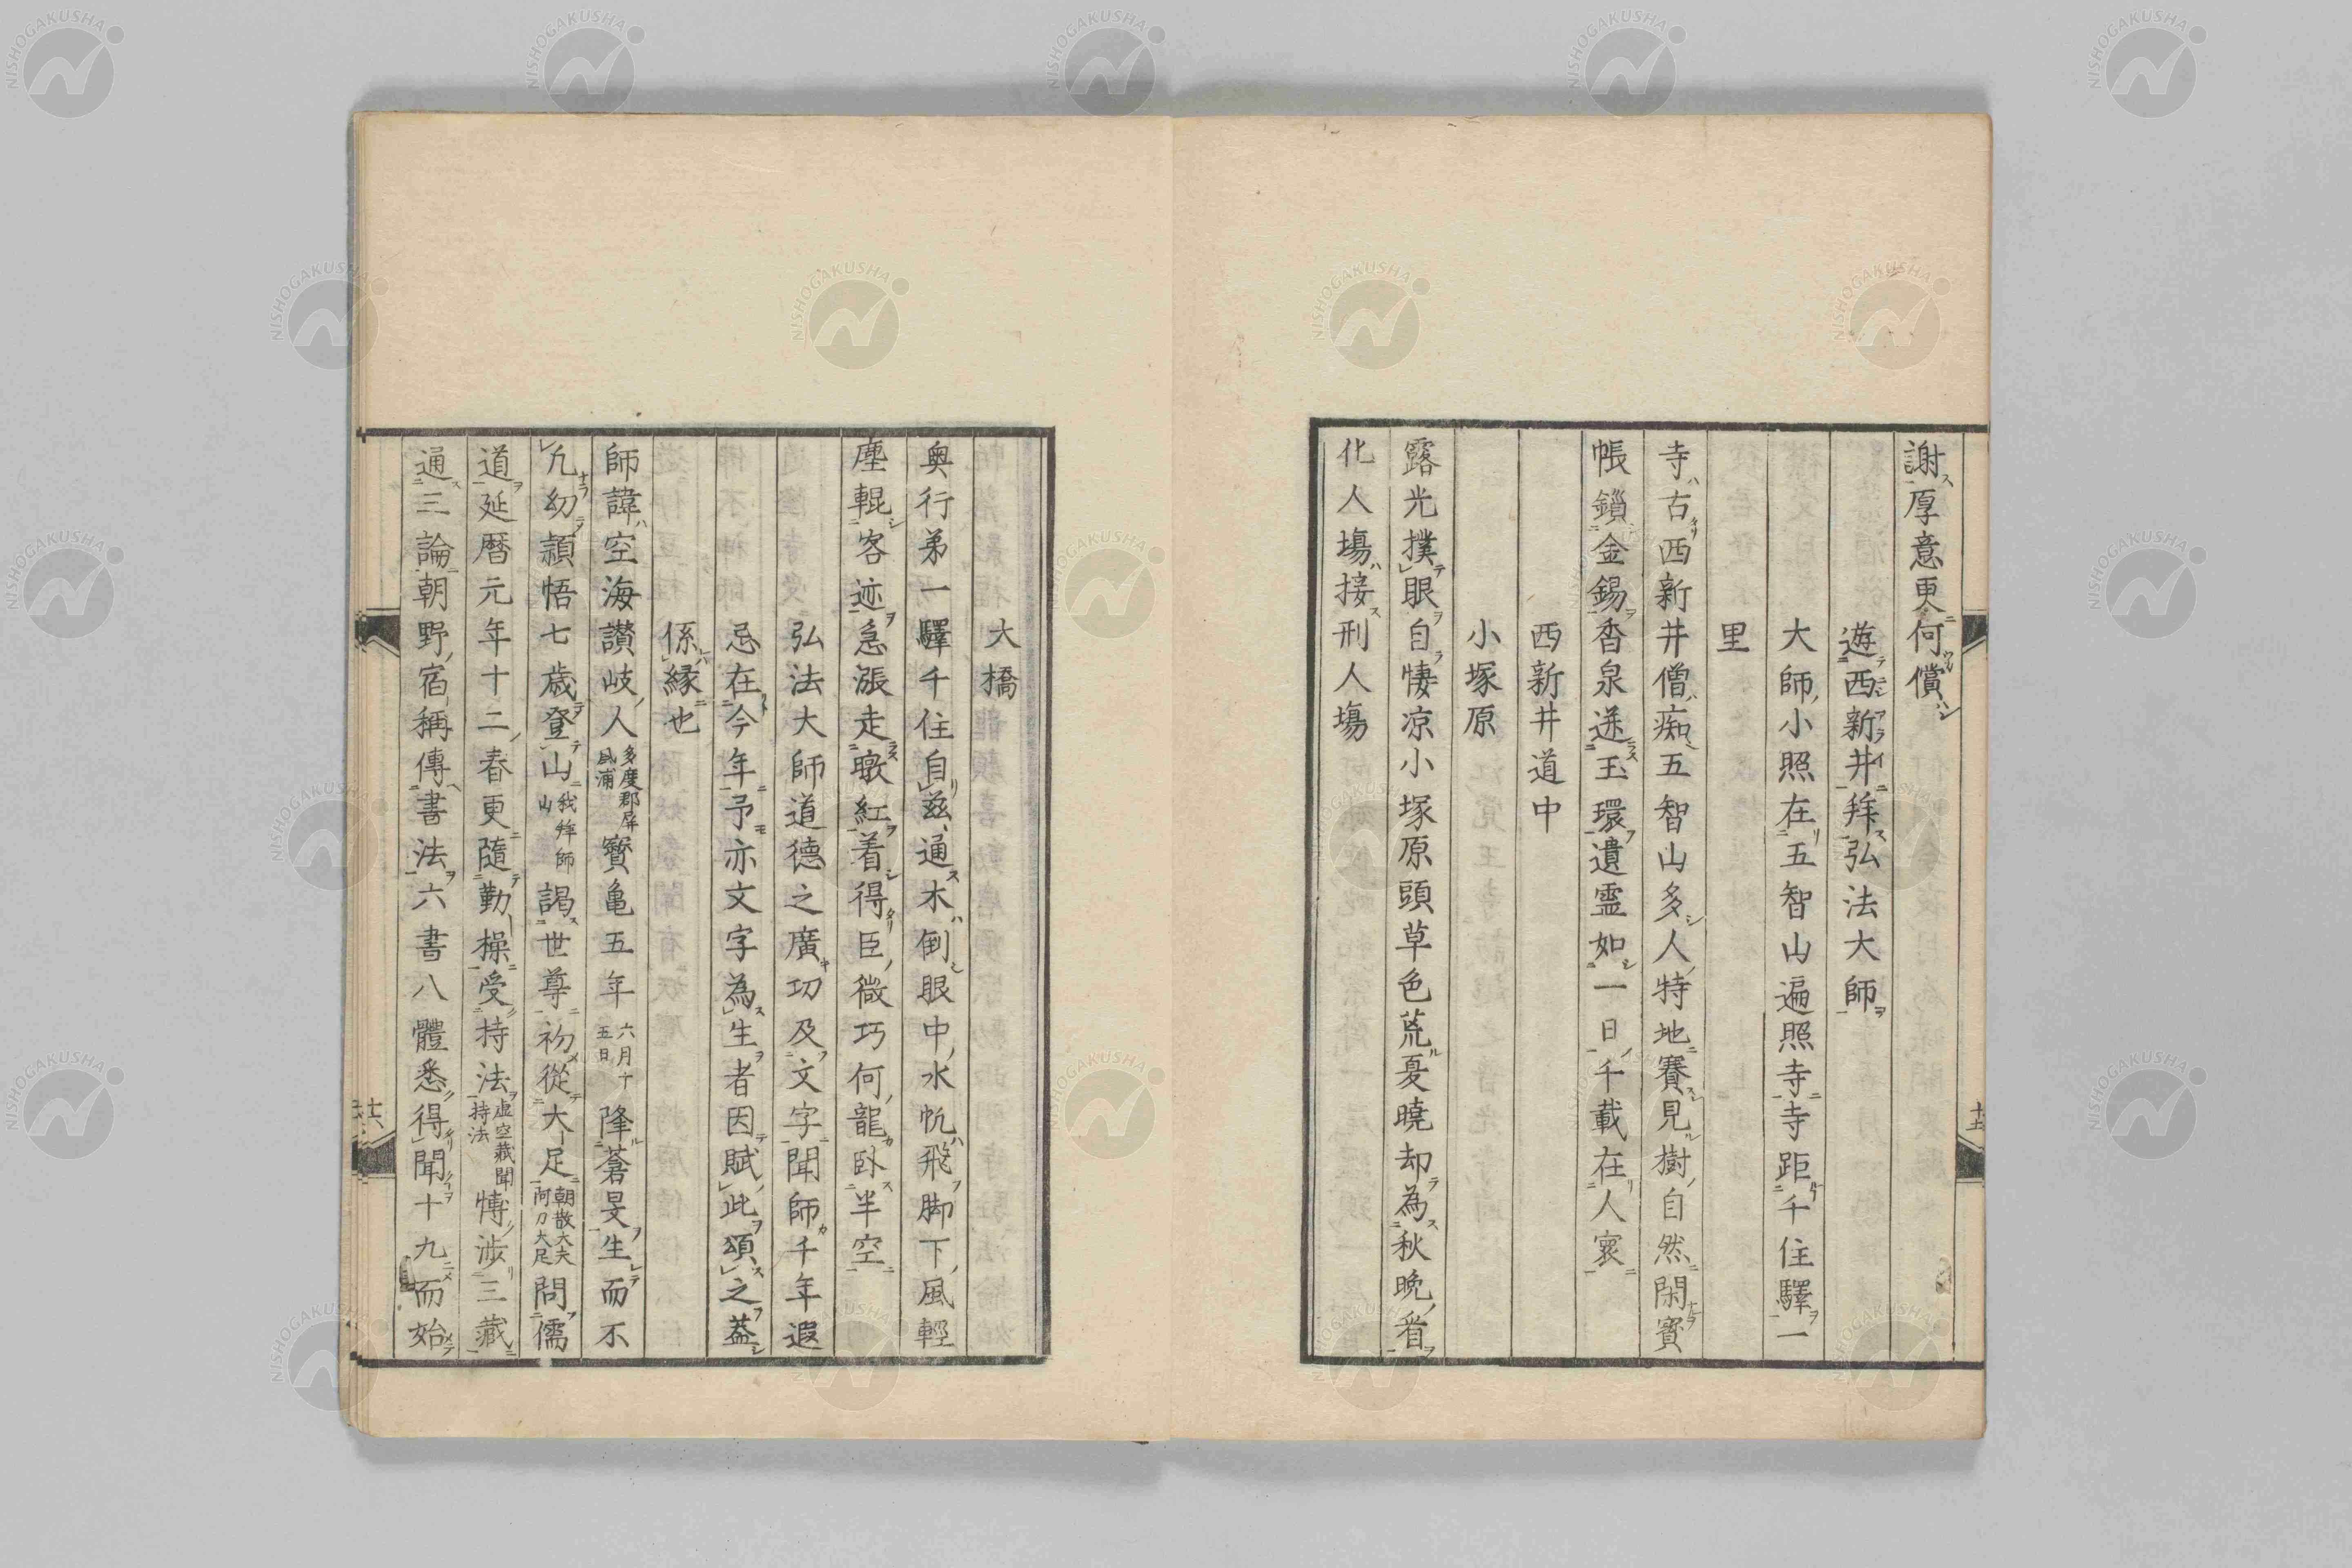 謝厚意更何償
遊西新井拜弘法大師
大師小照在五智山遍照寺寺距千住驛一
里
寺古西新井僧痴五智山多人特地賽見樹自然閑寳
帳鎖金錫香泉迸玉環遺霊如一日千載在人寰
西新井道中
小塚原
露光撲眼自悽凉小塚原頭草色荒憂曉却為秋晩看
化人塲接刑人塲
十五
大橋
奥行第一驛千住自茲通木倒眼中水帆飛脚下風輕
塵輥客迹急漲走暾紅着得臣微巧何龍卧半空
弘法大師道德之廣功及文字聞師千年遐
忌在今年予亦文字為生者因賦此頌之葢
係縁也
師諱空海讃岐人多度郡屏風浦寳亀五年六月十五日降蒼旻生而不
凢幼穎悟七歳登山我拜師山謁世尊初從大足朝散大夫阿刀大足問儒
道延暦元年十二春更隨勤操受持法虚空藏聞持法愽涉三藏
通三論朝野宿稱傳書法六書八體悉得聞十九而始
十六
NISHOGAKUSHA